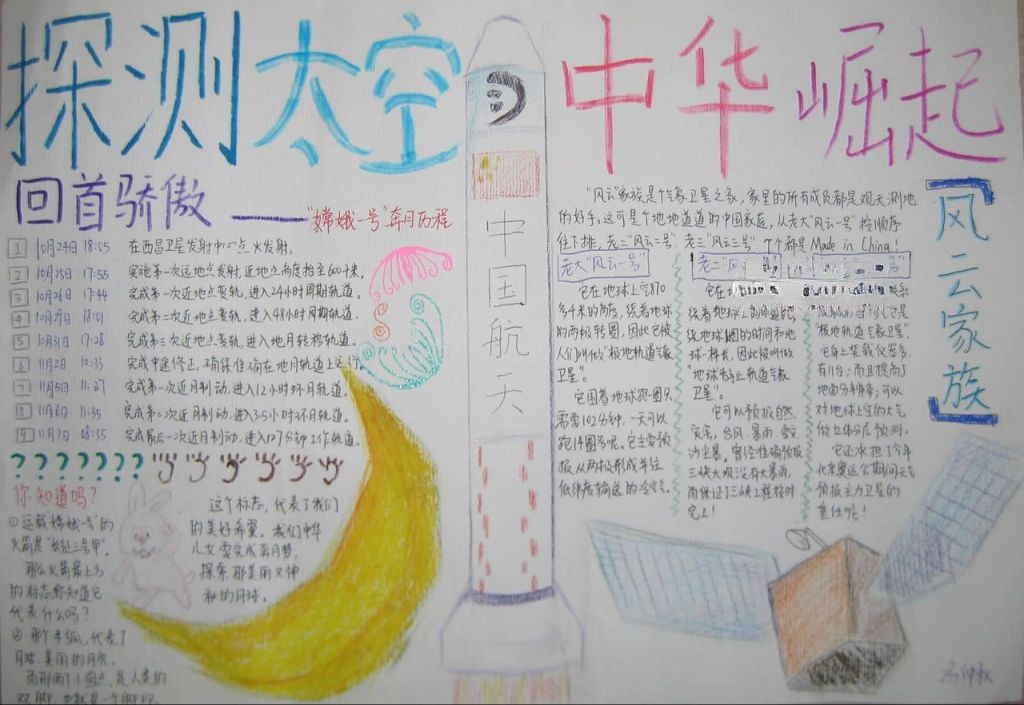 探测太空
中华崛起
回首骄傲——“嫦娥一号”奔月历程
1 10月24日 18:05 在西昌卫星发射中心点火发射。
2 10月25日 17:55 实施第一次远地点发射,近地点高度抬至600千米。
3 10月26日 17:44 完成第一次近地点变轨,进入24小时周期轨道。
4 10月29日 18:01 完成第二次近地点变轨,进入48小时周期轨道。
5 10月31日 17:28 完成第三次近地点变轨,进入地月转移轨道。
6 11月2日 10:33 完成中途修正,确保准确在地月轨道上运行。
7 11月5日 11:37 完成第一次近月制动,进入12小时环月轨道。
8 11月6日 11:35 完成第二次近月制动,进入3.5小时环月轨道。
9 11月7日 08:35 完成最后一次近月制动,进入127分钟工作轨道。
???????
你知道吗?
①运载“嫦娥一号”的
火箭是“长征三号甲”。
那么火箭最上方
的标志你知道它
代表什么吗?
那个半弧,代表了
月球,美丽的月亮。
而那两个小圆点,是人类的
双脚,
这个标志,代表了我们
的美好希冀。我们中华
儿女要完成奔月梦,
探索那美丽又神
秘的月球。
中国航天
“风云”家族是个气象卫星之家,家里的所有成员都是观天测地
的好手,这可是个地地道道的中国家庭,从老大“风云一号”按顺序
往下排,老二“风云二号”、老三“风云三号”,个个都是Made in China!
老大“风云一号”
它在地球上空870
多千米的高度,绕着地球
的两极转圈,因此它被
人们叫做“极地轨道气象
卫星”。
它围着地球跑一圈只
需要102分钟,一天可以
跑14圈多呢。它主要预
报从两极形成并往
低纬度输送的冷空气。
老二“风
它在
绕着地球
绕地球1圈的时间和地
球一样长,因此被叫做
“地球静止轨道气象
卫星”。
它可以预报自然
灾害,台风、暴雨、雪灾
沙尘暴。曾经准确预报
三峡大坝没有大暴雨,
而保证了三峡工程按时
完工!
“极地轨道气象卫星”,
它身上装载仪器多,
有11台;而且提高了
地面分辨率;可以
对地球上空的大气
做立体分层预测。
它还承担了今年
北京奥运会期间天气
预报主力卫星的
重任呢!
风云家族